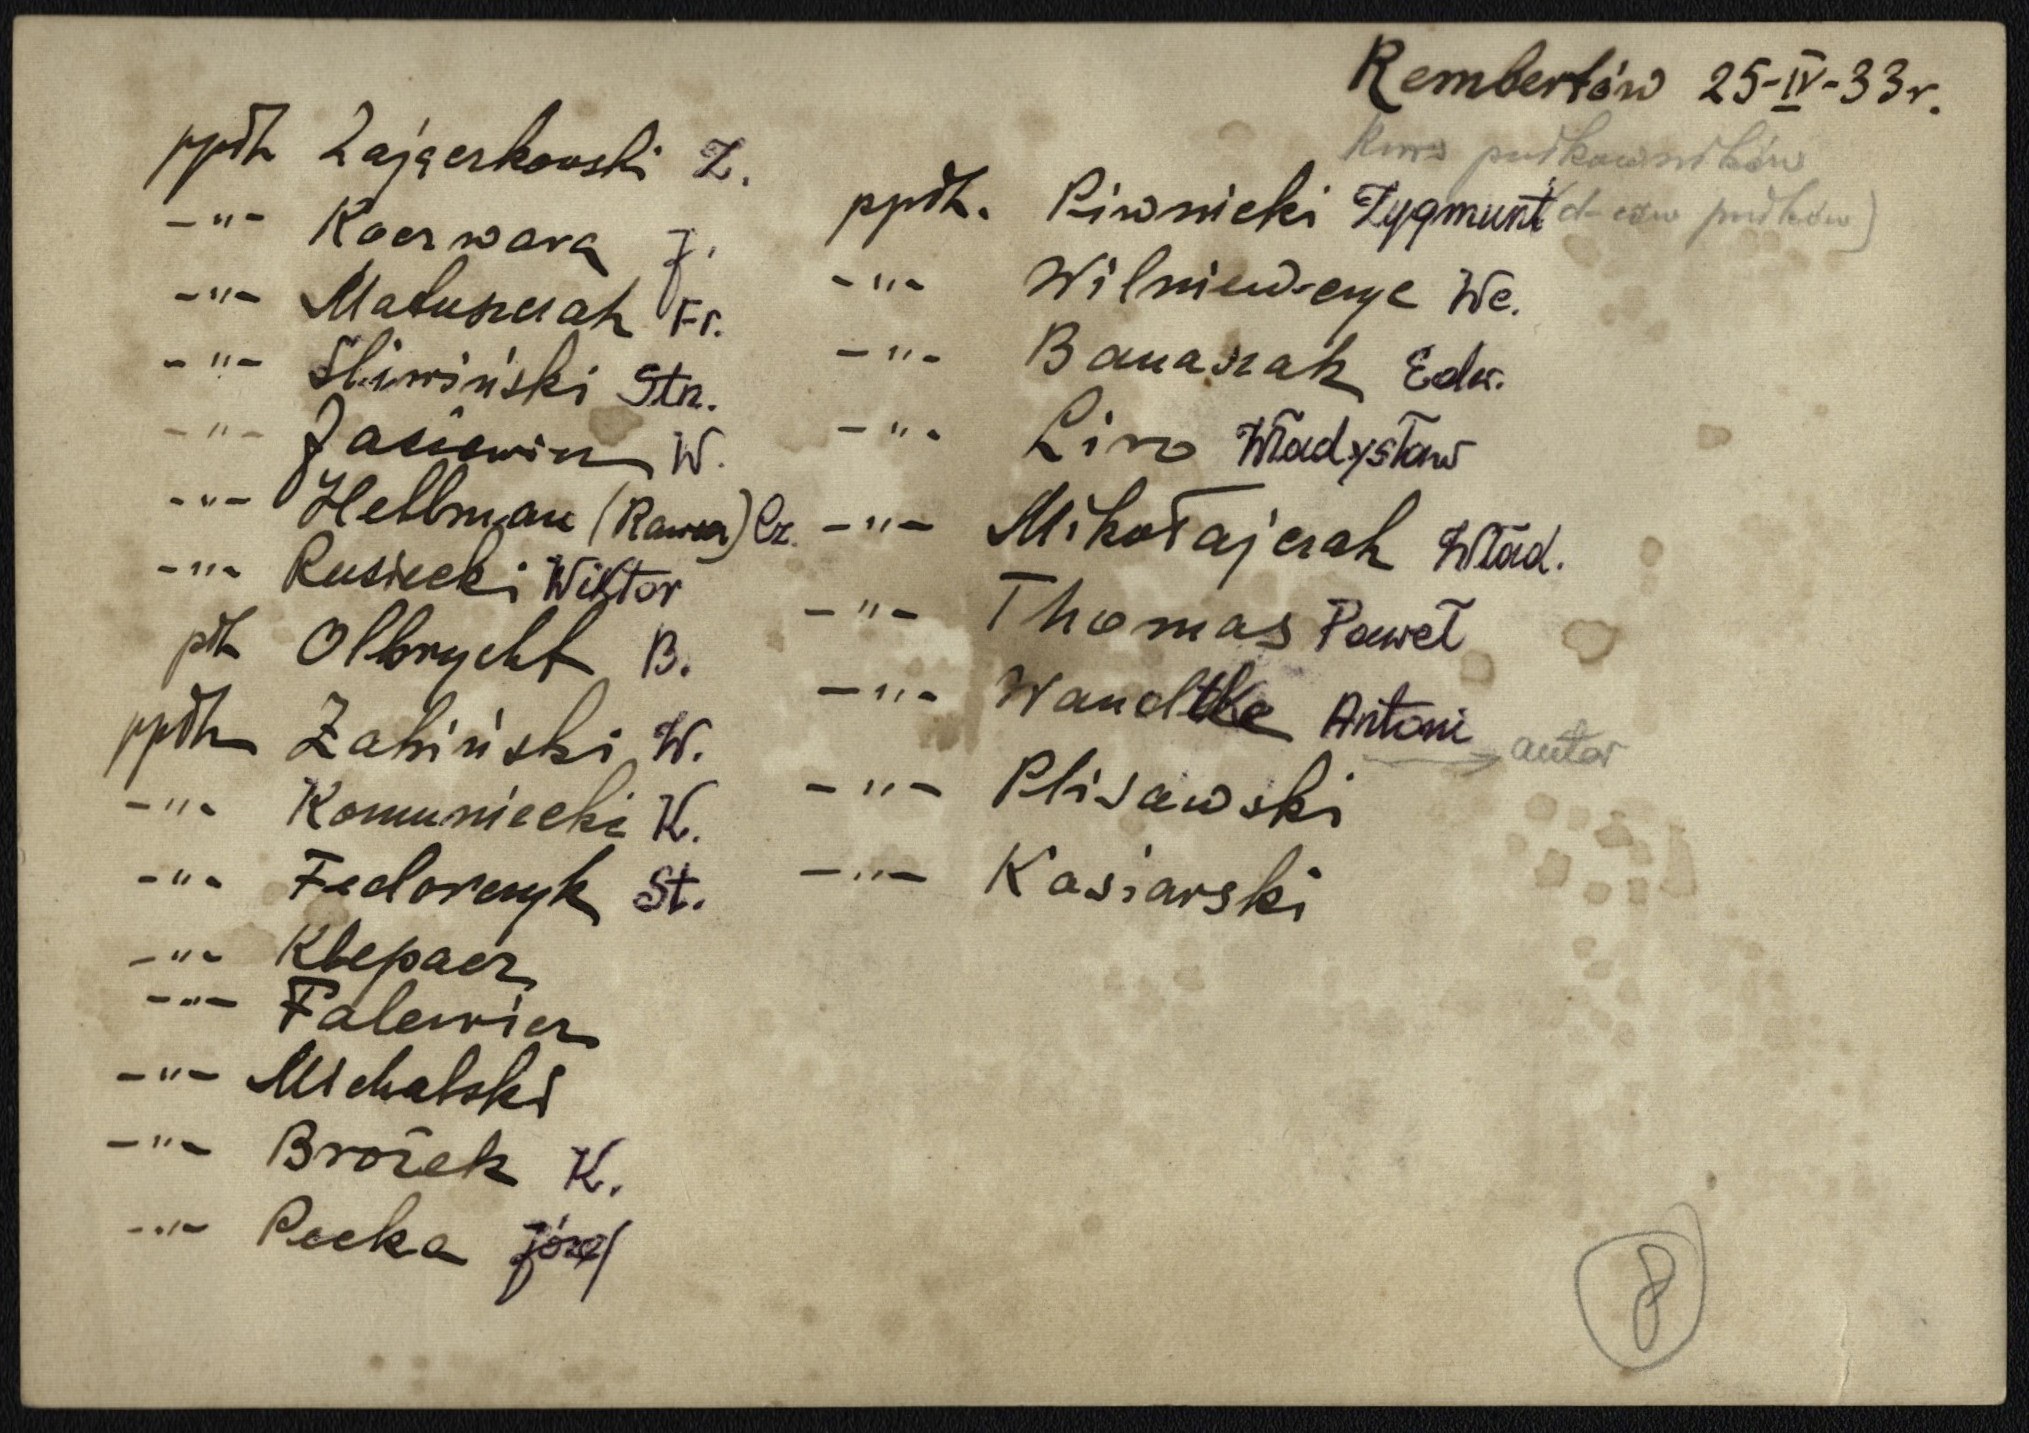 Rembertów 25-IV-33r.
kurs pułkowników
(d-ców pułków)
ppłk Zajączkowski Z.
-"- Koczwara J.
-"- Matuszczak Fr.
-"- Śliwiński Stn.
-"- Jasiewicz W.
-"- Hellman (Rawicz) Cz.
-"- Rusiecki Wiktor
płk Olbrycht B.
ppłk Żabiński W.
-"- Komuniecki K.
-"- Fedorczyk St.
-"- Klepacz
-"- Falewicz
-"- Michalski
-"- Brożek K.
-"- Pecka Józef
ppłk. Piwnicki Zygmunt
-"- Wilniewczyc We.
-"- Banaszak Edw.
-"- Liro Władysław
-"- Mikołajczak Wład.
-"- Thomas Paweł
-"- Wandtke Antoni → autor
-"- Plisawski
-"- Kasiarski
8